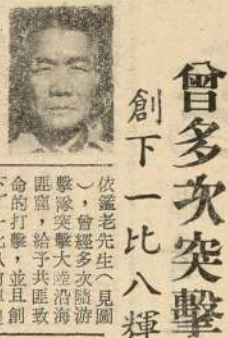 曾多次突擊
創下一比八輝
依鑑老先生(見圖
),曾經多次隨游
擊隊突擊大陸沿海
匪窟,給予共匪致
命的打擊,並且創